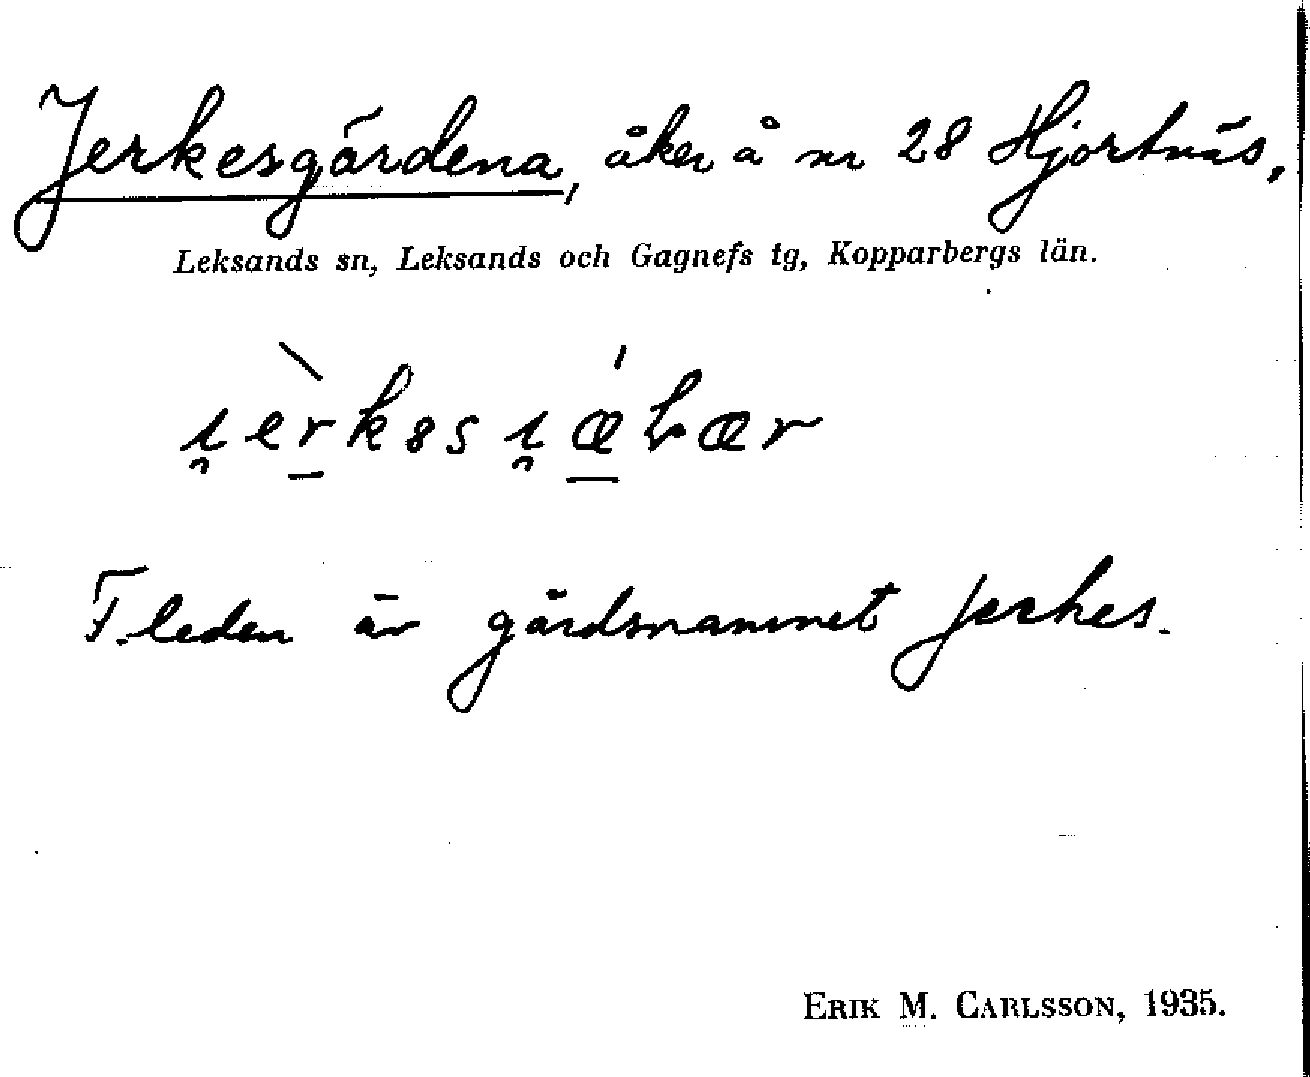 Jerkesgärdena, åker å nr 28 Hjortnäs,
Leksands sn, Leksands och Gagnefs tg, Kopparbergs län.
F.leden är gårdsnamnet Jerkes.
ERIK M. CARLSSON, 1935.